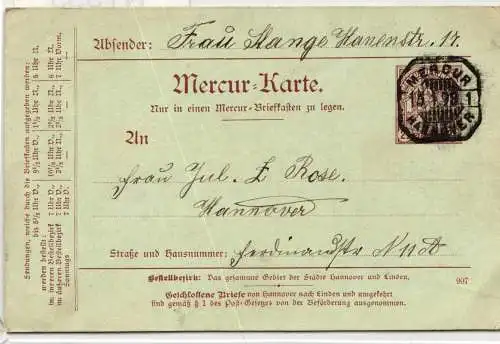 Absender: Frau Stange Kanenstr. 17.
Mercur-Karte.
Nur in einen Mercur-Briefkasten zu legen.
MERCUR
HANNOVER
1
An
Frau Jul. L Rose.
Hannover
Straße und Hausnummer: Ferdinandstr N 11 A
Bestellbezirk: Das gesamme Gebiet der Städte Hannover und Linden.
907
Geschlossene Briefe von Hannover nach Linden und umgekehrt
sind gemäß § 1 des Post-Gesetzes von der Beförderung ausgenommen.
Sendungen, welche durch die Briefkasten aufgegeben werden:
werden bestellt
im inneren Bestellbezirk
im äußeren Bestellbezirk
Sonntags